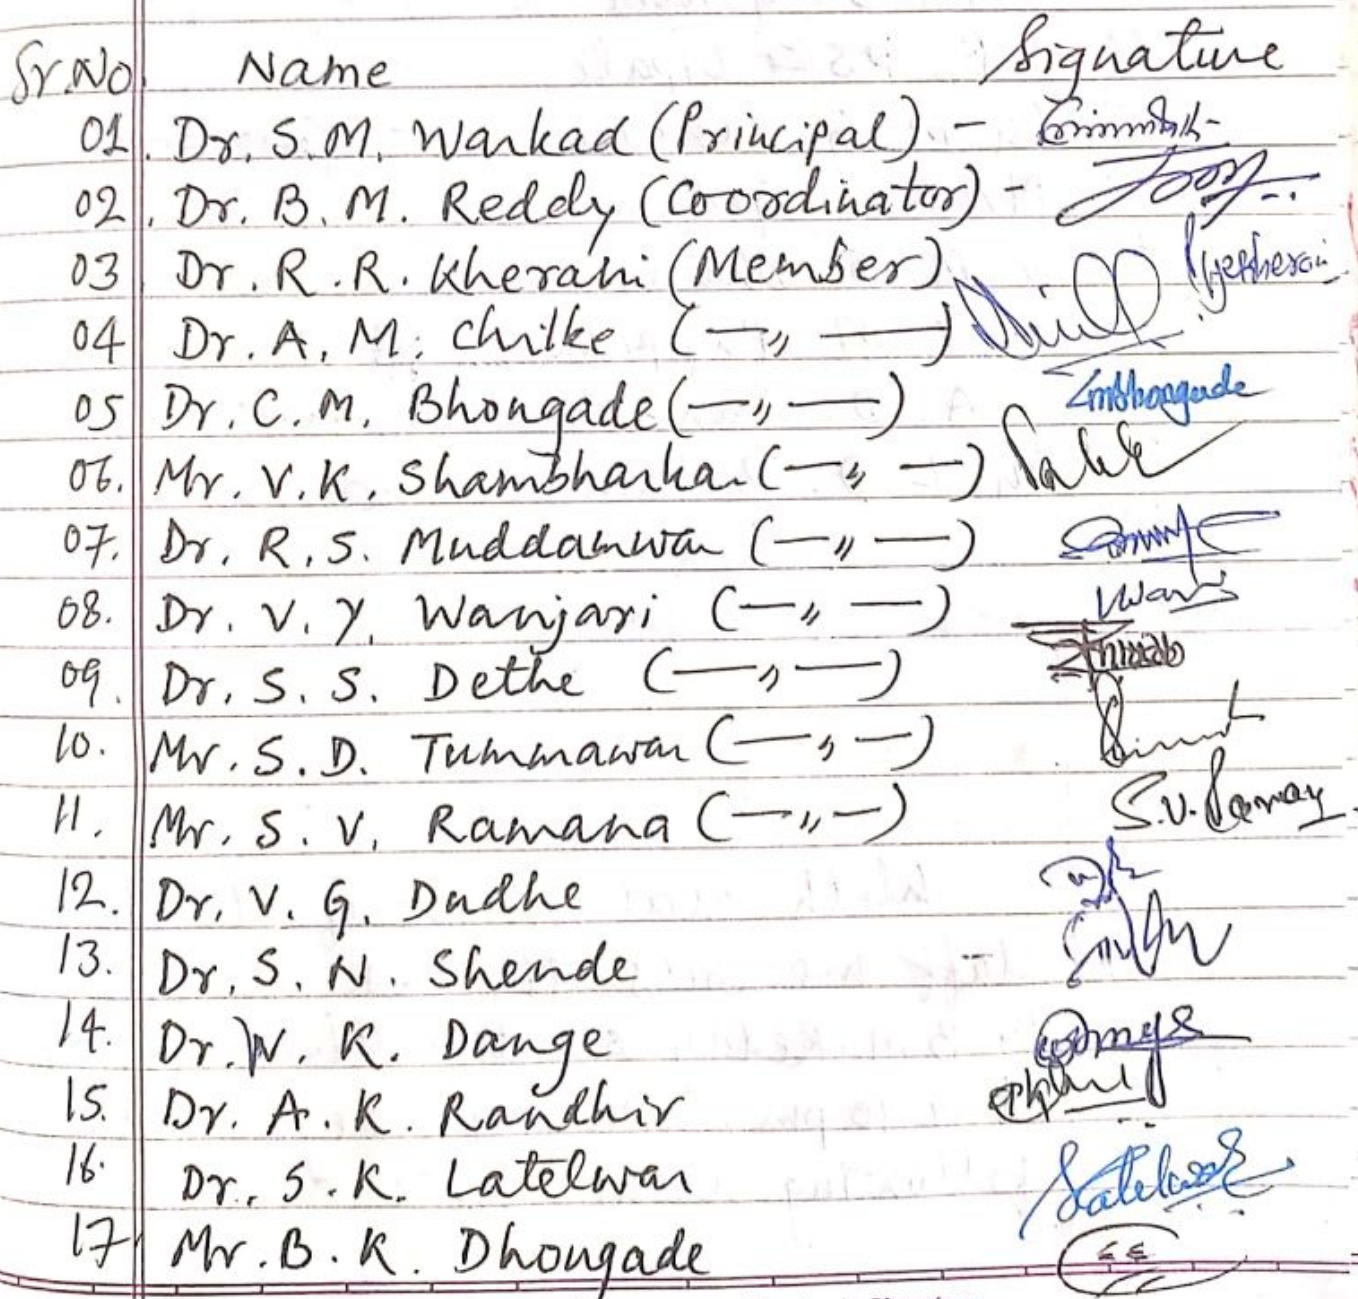 Sr.No. Name Signature
01. Dr. S. M. Warkad (Principal) -
02. Dr. B. M. Reddy (Coordinator) -
03 Dr. R. R. Kherani (Member)
04 Dr. A. M. Chilke (—„—)
05 Dr. C. M. Bhongade (—„—) Cmbhongade
06. Mr. V. K. Shambharkar (—„—)
07. Dr. R. S. Muddamwar (—„—)
08. Dr. V. Y. Wanjari (—„—)
09. Dr. S. S. Dethe (—„—)
10. Mr. S. D. Tummawar (—„—)
11. Mr. S. V. Ramana (—„—) S.V.
12. Dr. V. G. Dudhe
13. Dr. S. N. Shende
14. Dr. W. K. Dange
15. Dr. A. K. Randhir
16. Dr. S. K. Latelwar
17 Mr. B. K. Dhongade